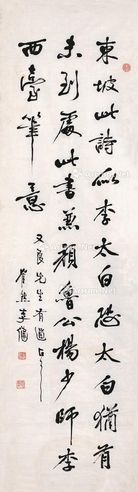 東坡此詩似李太白恐太白猶有
未到處此書兼顏魯公楊少師李
西臺筆意
又良先生有道正之
鶴然李健